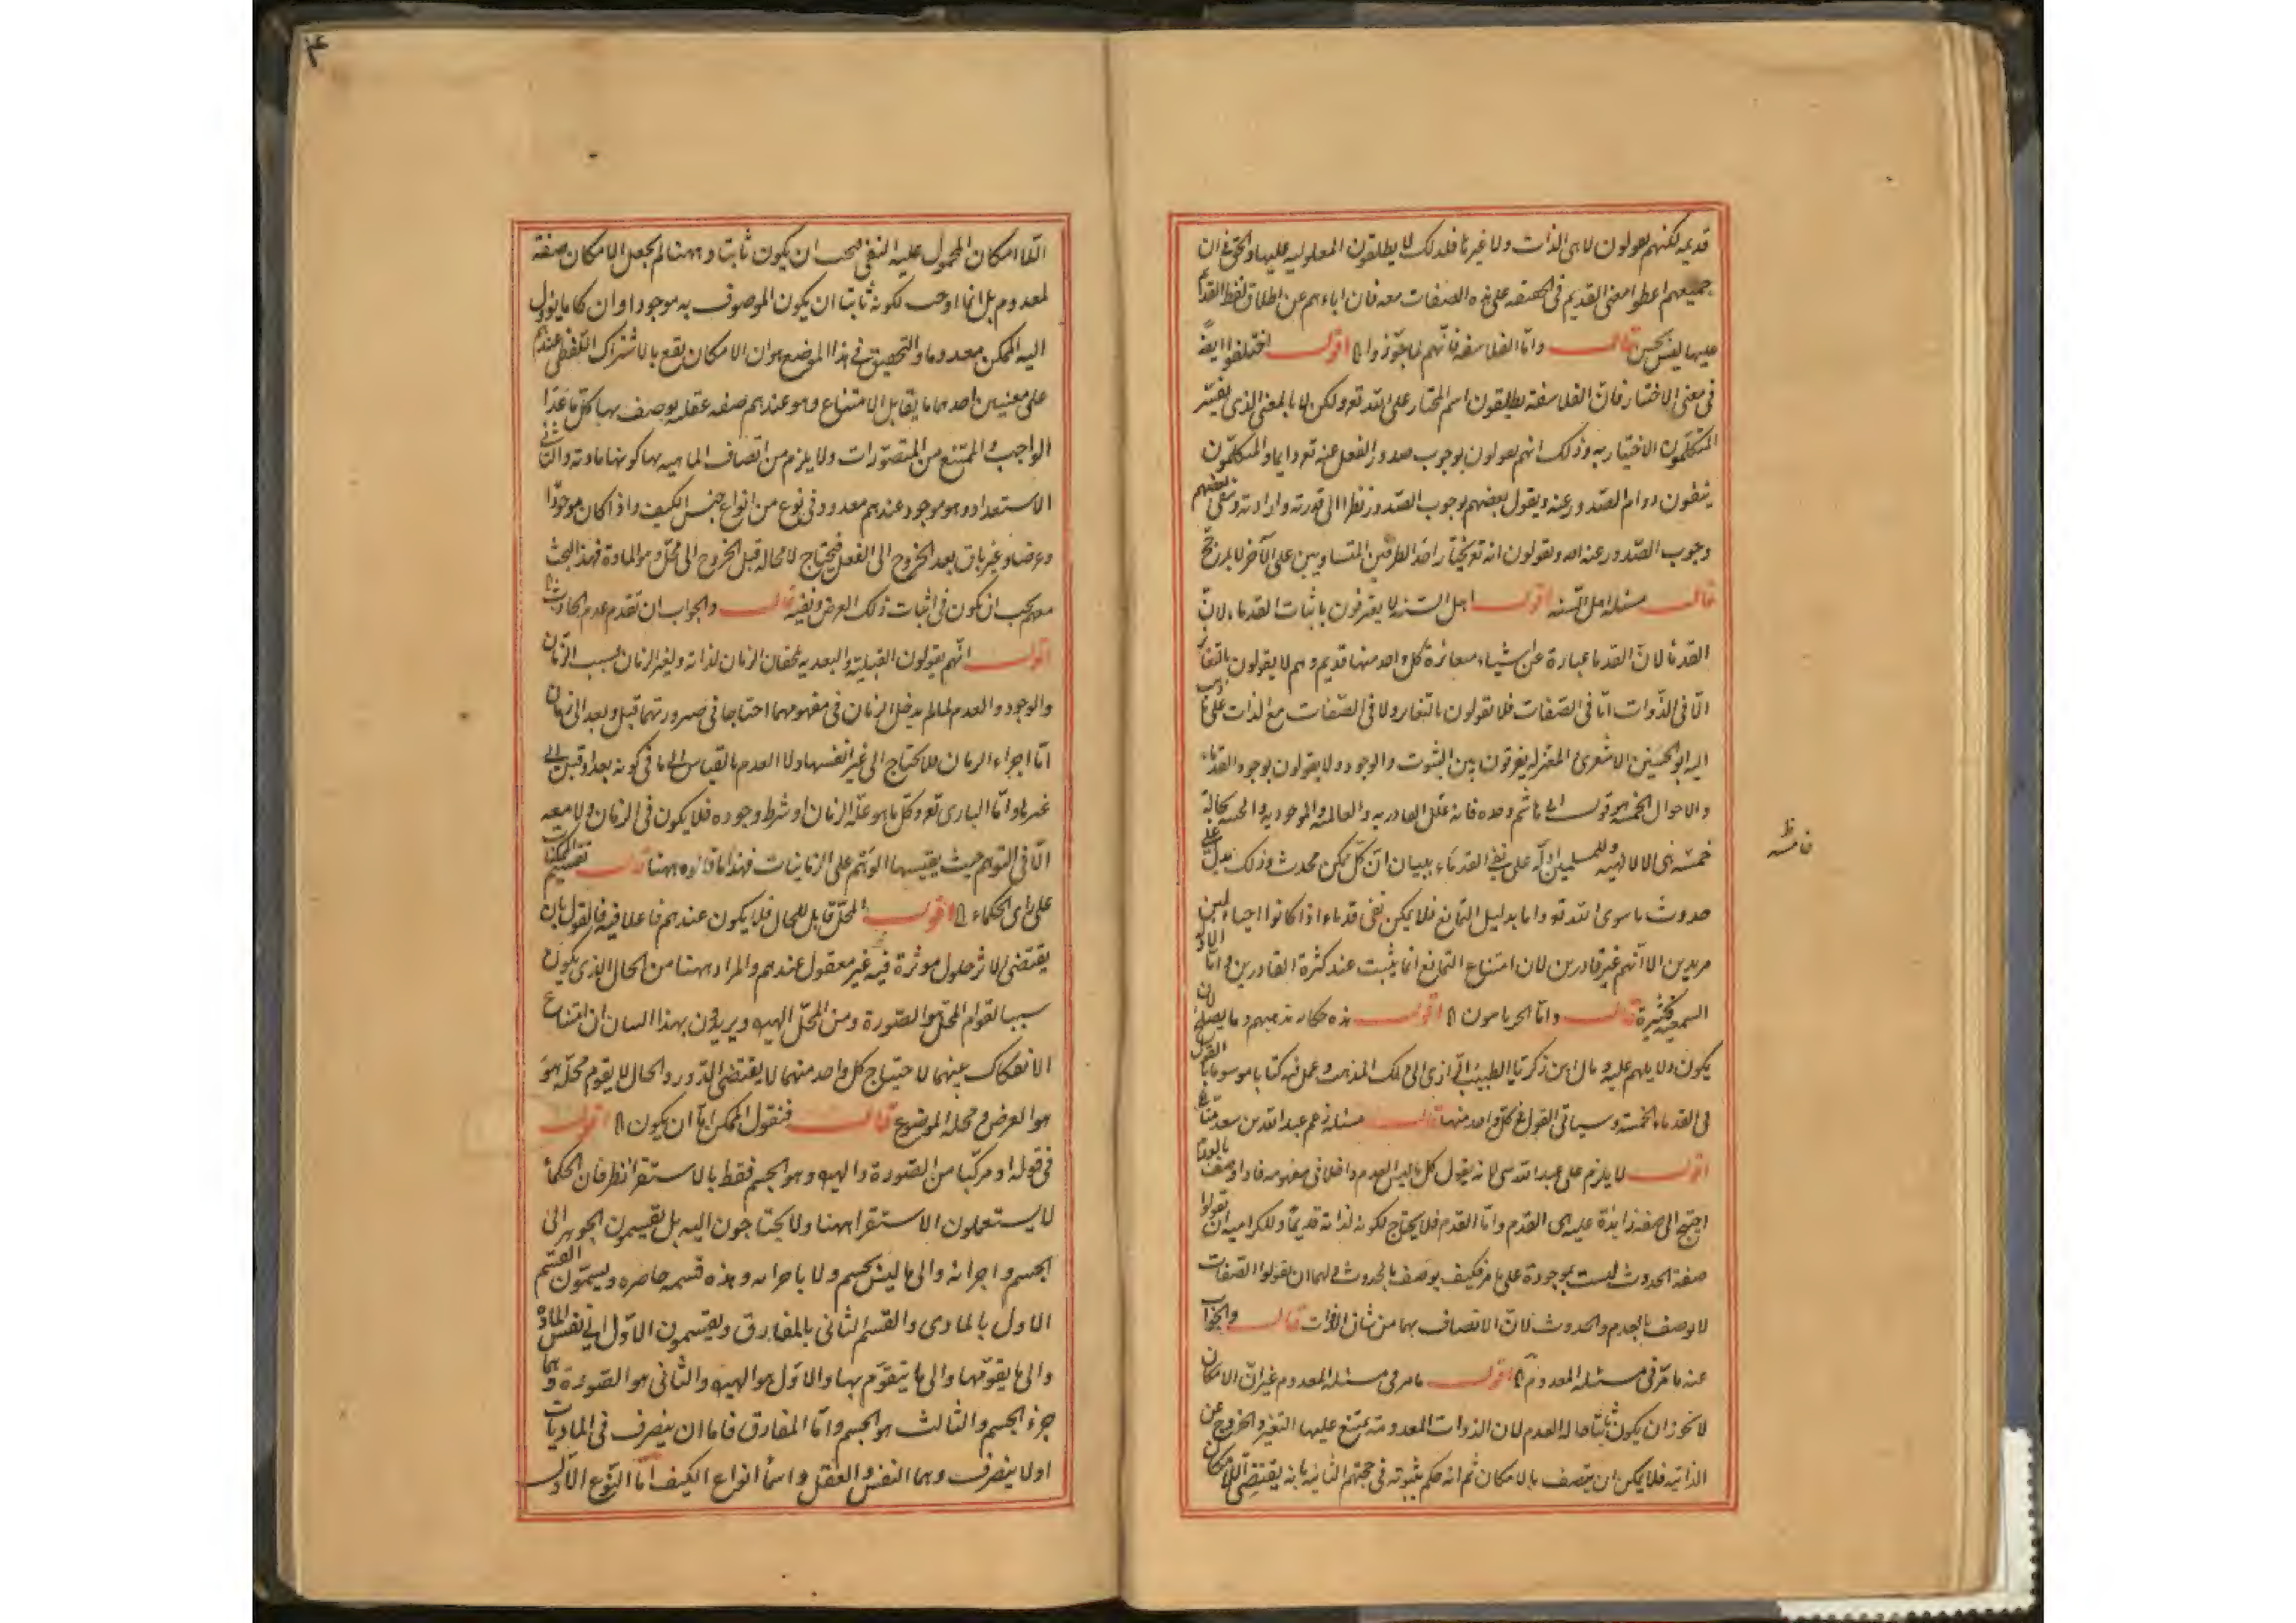 قديمه لكنهم يقولون لا هى الذات ولا غيرها فلذلك لا يطلقون المعلوليه عليها والحق ان
جميعهم اعطوا معنى القديم فى الحقيقه على هذه الصفات معه فان اباءهم عن اطلاق لفظ القديم
عليها ليس بحسن قال واما الفلاسفه فانهم لما جوزوا الخ اقول اختلفوا ايضا
فى معنى الاختيار فان الفلاسفة يطلقون اسم المختار على الله تع ولكن لا بالمعنى الذى يفسر
المتكلمون الاختيار به وذلك انهم يقولون بوجوب صدور الفعل عنه تع دايما والمتكلمون
ينفون دوام الصدور عنه ويقول بعضهم بوجوب الصدور نظرا الى قدرته وارادته ونفى بعضهم
وجوب الصدور عنه اصلا ويقولون انه تع يختار احد الطرفين المتساويين على الآخر لا لمرجح
قال مسئله اهل السنه اقول اهل السنه لا يعترفون باثبات القدماء لان
القدماء لان القدما عبارة عن اشياء متغائرة كل واحد منها قديم وهم لا يقولون بالتغاير
الا فى الذوات اما فى الصفات فلا يقولون بالتغاير ولا فى الصفات مع الذات على ما ذهب
اليه ابو الحسين الاشعرى والمعتزله يفرقون بين الثبوت والوجود ولا يقولون بوجود القدماء
والاحوال الخمسه قول ابى هاشم وحده فانه علل القادريه والعالميه والموجوديه والحييه بحالة
خمسه هى الالهيه وللمسلمين ادله على نفى القدماء ببيان ان كل ممكن محدث وذلك يدل على
خامسه ظ
حدوث ما سوى الله تع واما بدليل التمانع فلا يمكن نفى قدماء اذا كانوا احياء ليس
مريدين الا انهم غير قادرين لان امتناع التمانع انما يثبت عند كثرة القادرين واما الادلة
السمعيه فكثيرة قال واما الحرنانيون الخ اقول هذه حكاية مذهبهم وما يصلح لان
يكون ولا يلهم عليه ومال ابن زكريا الطبيب الرازى الى ذلك المذهب وعمل فيه كتابا موسوما بالقول
فى القدماء الخمسة وسياتى القول فى كل واحد منها قال مسئله زعم عبد الله بن سعيد منا
اقول لا يلزم على عبد الله شى لانه يقول كل ما ليس العدم داخلا فى مفهومه فاذا وصف بالعدم
احتيج الى صفة زايدة عليه هى القدم واما القدم فلا يحتاج لكونه لذاته قديما وللكراميه ان يقولوا
صفة الحدوث ليست بموجودة على ما مر فكيف يوصف بالحدوث ولهما ان يقولوا الصفات
لا يوصف بالقدم والحدوث لان الاتصاف بهما من شان الذوات قال والجواب
عنه ما مر فى مسئله المعدوم الخ اقول ما مر فى مسئله المعدوم غير ان الامكان
لا يجوز ان يكون ثابتا حاله العدم لان الذوات المعدومة يمتنع عليها التغير والخروج عن
الذاتيه فلا يمكن ان يتصف بالامكان ثم انه حكم بثبوته فى حجتهم الثانيه بانه يقتضى اللاامكان
۴
اللاامكان المحمول عليه النفى فيجب ان يكون ثابتا وههنا لم يجعل الامكان صفة
لمعدوم بل انما اوجب لكونه ثابتا ان يكون الموصوف به موجودا وان كان ما يؤول
اليه الممكن معدوما والتحقيق فى هذا الموضع هو ان الامكان يقع بالاشتراك اللفظى عندهم
على معنيين احدهما ما يقابل الامتناع وهو عندهم صفه عقليه يوصف بها كل ما عدا
الواجب والممتنع من المتصورات ولا يلزم من اتصاف الماهيه بها كونها ماديه والثانى
الاستعداد وهو موجود عندهم معدود فى نوع من انواع جنس الكيف واذا كان موجودا
وعرضا وغير باق بعد الخروج الى الفعل فيحتاج لا محاله قبل الخروج الى محل وهو المادة فهذا البحث
معهم يجب ان يكون فى اثبات ذلك العرض ونفيه قال والجواب ان تقدم عدم الحادث الخ
اقول انهم يقولون القبليه والبعديه يلحقان الزمان لذاته ولغير الزمان بسبب الزمان
والوجود والعدم لما لم يدخل الزمان فى مفهومهما احتاجا فى صيرورتهما قبل وبعد الى زمان
اما اجزاء الزمان فلا يحتاج الى غير انفسها ولا العدم بالقياس الى ما فى كونه بعد او قبل الى
غيرها واما البارى تع وكل ما هو عله الزمان او شرط وجوده فلا يكون فى الزمان ولا معه
الا فى التوهم حيث يقيسها الوهم على الزمانيات فهذا ما قالوه ههنا قال تقسيم الممكنات
على راى الحكماء الخ اقول المحل قابل للحال فلا يكون عندهم فاعلا فيه فالقول بان
يقتضى الاثر حلول موثرة فيه غير معقول عندهم والمراد ههنا من الحال الذى يكون
سببا لقوام المحل هو الصورة ومن المحل الهيولى ويريدون بهذا البيان ان امتناع
الانفكاك عنهما لاحتياج كل واحد منهما لا يقتضى الدور والحال لا يقوم محله هو
هو العرض ومحله الموضوع قال فنقول الممكن اما ان يكون الخ اقول
فى قوله او مركبا من الصورة والهيولى وهو الجسم فقط بالاستقرا نظر فان الحكما
لا يستعملون الاستقرا ههنا ولا يحتاجون اليه بل يقسمون الجوهر الى
الجسم واجزائه والى ما ليس بجسم ولا باجزائه وهذه قسمه حاصره ويسمون القسم
الاول بالمادى والقسم الثانى بالمفارق ويقسمون الاول الى نفس المادة
والى ما يقومها والى ما يتقوم بها والاول هو الهيولى والثانى هو الصورة وهما
جزء الجسم والثالث هو الجسم واما المفارق فاما ان يتصرف فى الماديات
او لا يتصرف وهما النفس والعقل واسما انواع الكيف اما النوع الاول